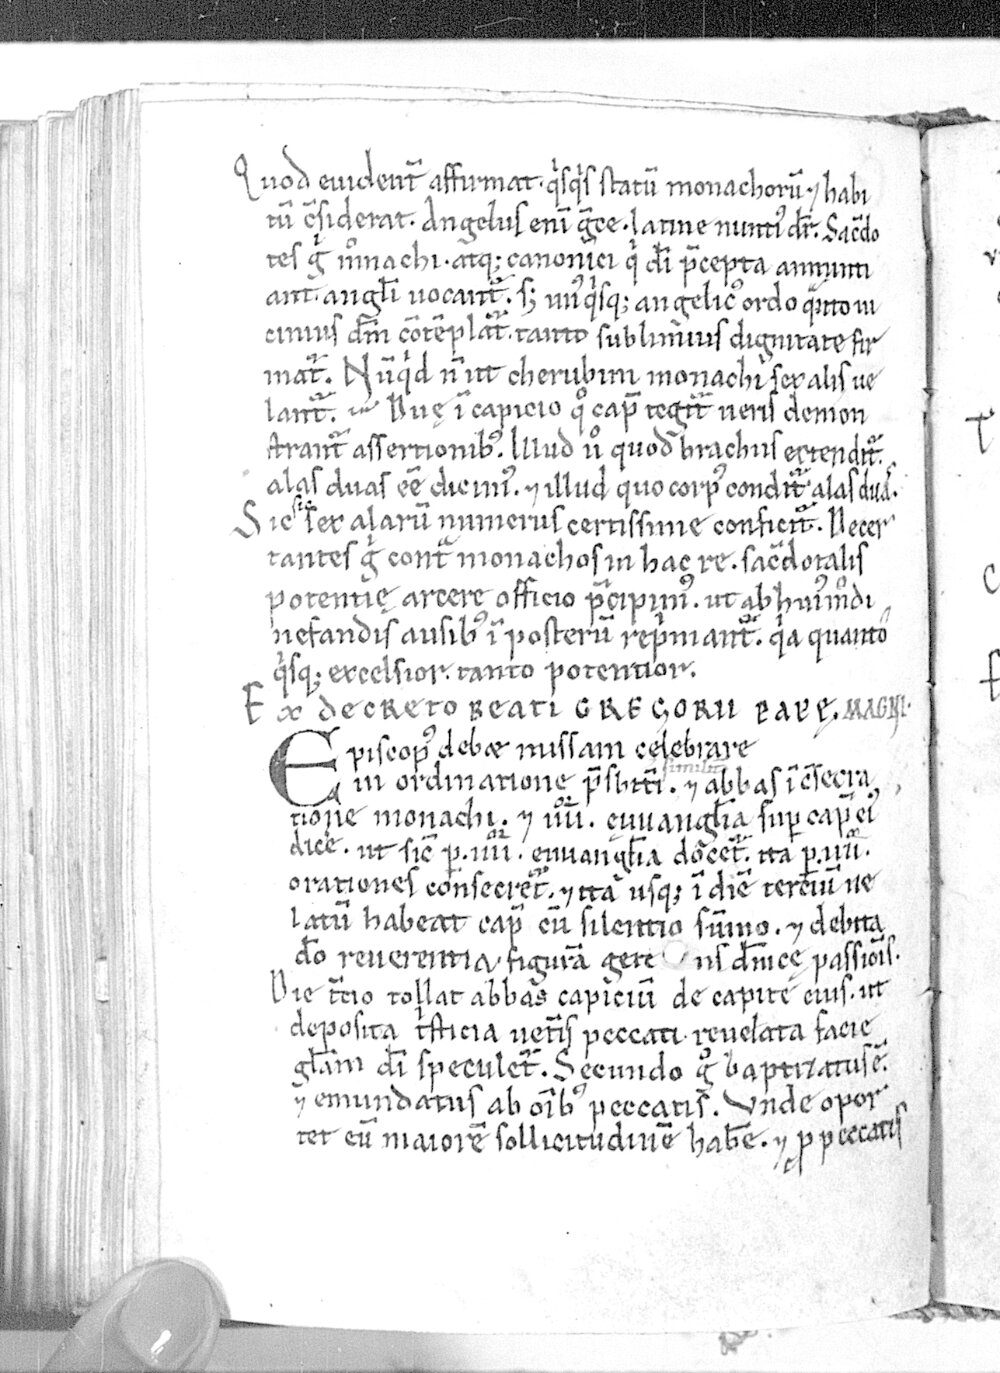 Quod euident̄ affirmat· q̇sq̇s statū monachorū ⁊ habi
tū c̄siderat. Angelus eni̅ gr̄ce· latine nunti᷒ dr̄. Sac̄do
tes g̊ monachi· atq; canonici q̇ di̅ p̄cepta annunti
ant· angli̅ uocant᷑. s; un᷒q̇sq; angelic᷒ ordo q̄nto ui
cinius dm̄ cōtēplat᷑· tanto sublimius dignitate fir
mat᷑. Nūq̇d n̄ ut cherubim monachi sex alis ue
lant᷑. Duę i̅ capicio q̊ cap̄ tegit᷑ ueris demon
strant᷑ assertionib᷒. Illud ů quod brachiis extendit᷑.
alas duas ee̅ dicim᷒. ⁊ illud quo corp᷒ condit᷑ alas duas.
Sic sex alarū numerus certissime conficit᷑. Decer
tantes g̊ cont̄ monachos in hac re· sac̄dotalis
potentię arcere officio p̄cipim᷒. ut ab hui᷒modi
nefandis ausib᷒ i̅ posterū rep̄mant᷑. q̇a quanto
q̇sq; excelsior· tanto potentior.
Ex decreto beati GREGORII PAPĘ. MAGNI·
Episcop᷒ debæ missam celebrare
in ordinatione p̄sbit̄i. similit̄ ⁊ abbas i̅ c̄secra
tione monachi. ⁊ uii. euuanglia sup cap̄ ei᷒
dice. ut sic̄ p. iiii. euuanglia docet᷑. ita p. uii.
orationes consecret᷑. ⁊ ita usq; i̅ diē terciū ue
latū habeat cap̄ cū silentio sūmo. ⁊ debita
do reuerentia· figurā gere ns dn̄icę passiōis.
Die t̄cio tollat abbas capiciū de capite eius. ut
deposita t̄sticia uet̄is peccati· reuelata facie
glām di̅ speculet᷑. Secundo g̊ baptizatus ē.
⁊ emundatus ab oi̅b᷒ peccatis. Unde opor
tet eū maiorē sollicitudinē habe̅. ⁊ p peccatis